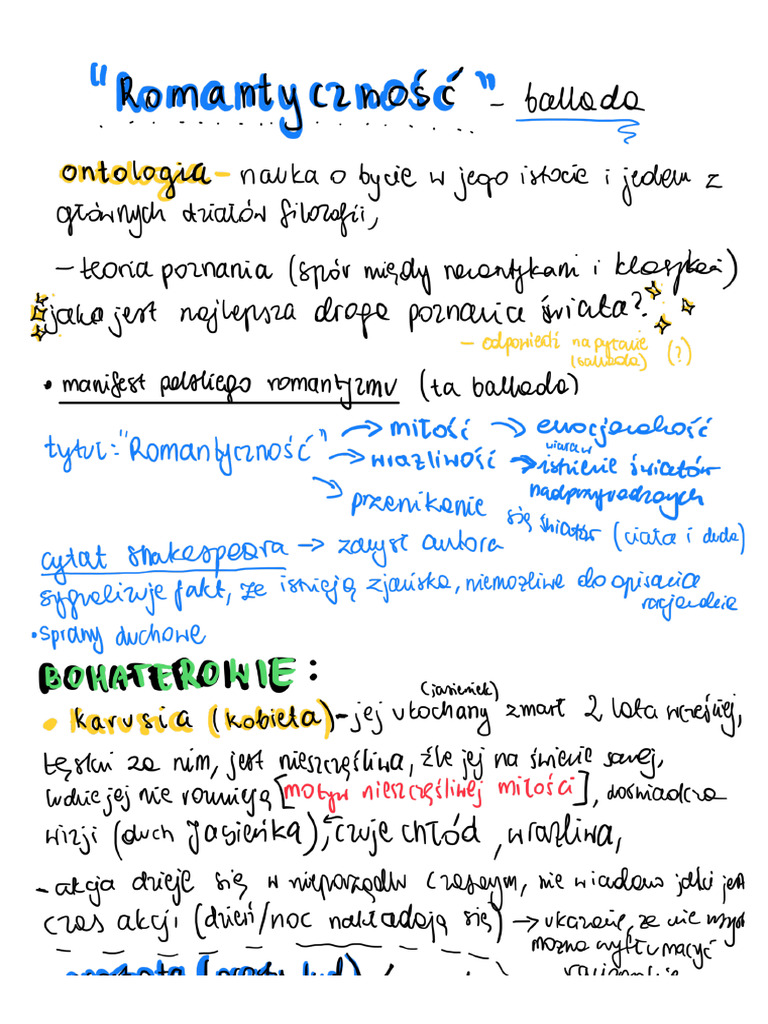 "Romantyczność" - ballada
ontologia - nauka o bycie w jego istocie i jeden z
głównych działów filozofii,
- teoria poznania (spór między romantykami i klasykami)
jaka jest najlepsza droga poznania świata?
- odpowiedź na pytanie (ballada) (?)
• manifest polskiego romantyzmu (ta ballada)
tytuł: "Romantyczność" → miłość → emocjonalność
→ wrażliwość → wiara w istnienie światów nadprzyrodzonych
→ przenikanie się światów (ciała i ducha)
cytat Shakespeara → zamysł autora
sygnalizuje fakt, że istnieją zjawiska, niemożliwe do opisania
racjonalnie
• sprawy duchowe
BOHATEROWIE:
• Karusia (kobieta) - jej ukochany (Jasieniek) zmarł 2 lata wcześniej,
tęskni za nim, jest nieszczęśliwa, źle jej na świecie samej,
ludzie jej nie rozumieją [motyw nieszczęśliwej miłości], doświadcza
wizji (duch Jasieńka), czuje chłód, wrażliwa,
- akcja dzieje się w nieporządku czasowym, nie wiadomo jaki jest
czas akcji (dzień/noc nakładają się) → ukazanie, że nie wszystko
można wytłumaczyć
racjonalnie
prostota (prosty lud)